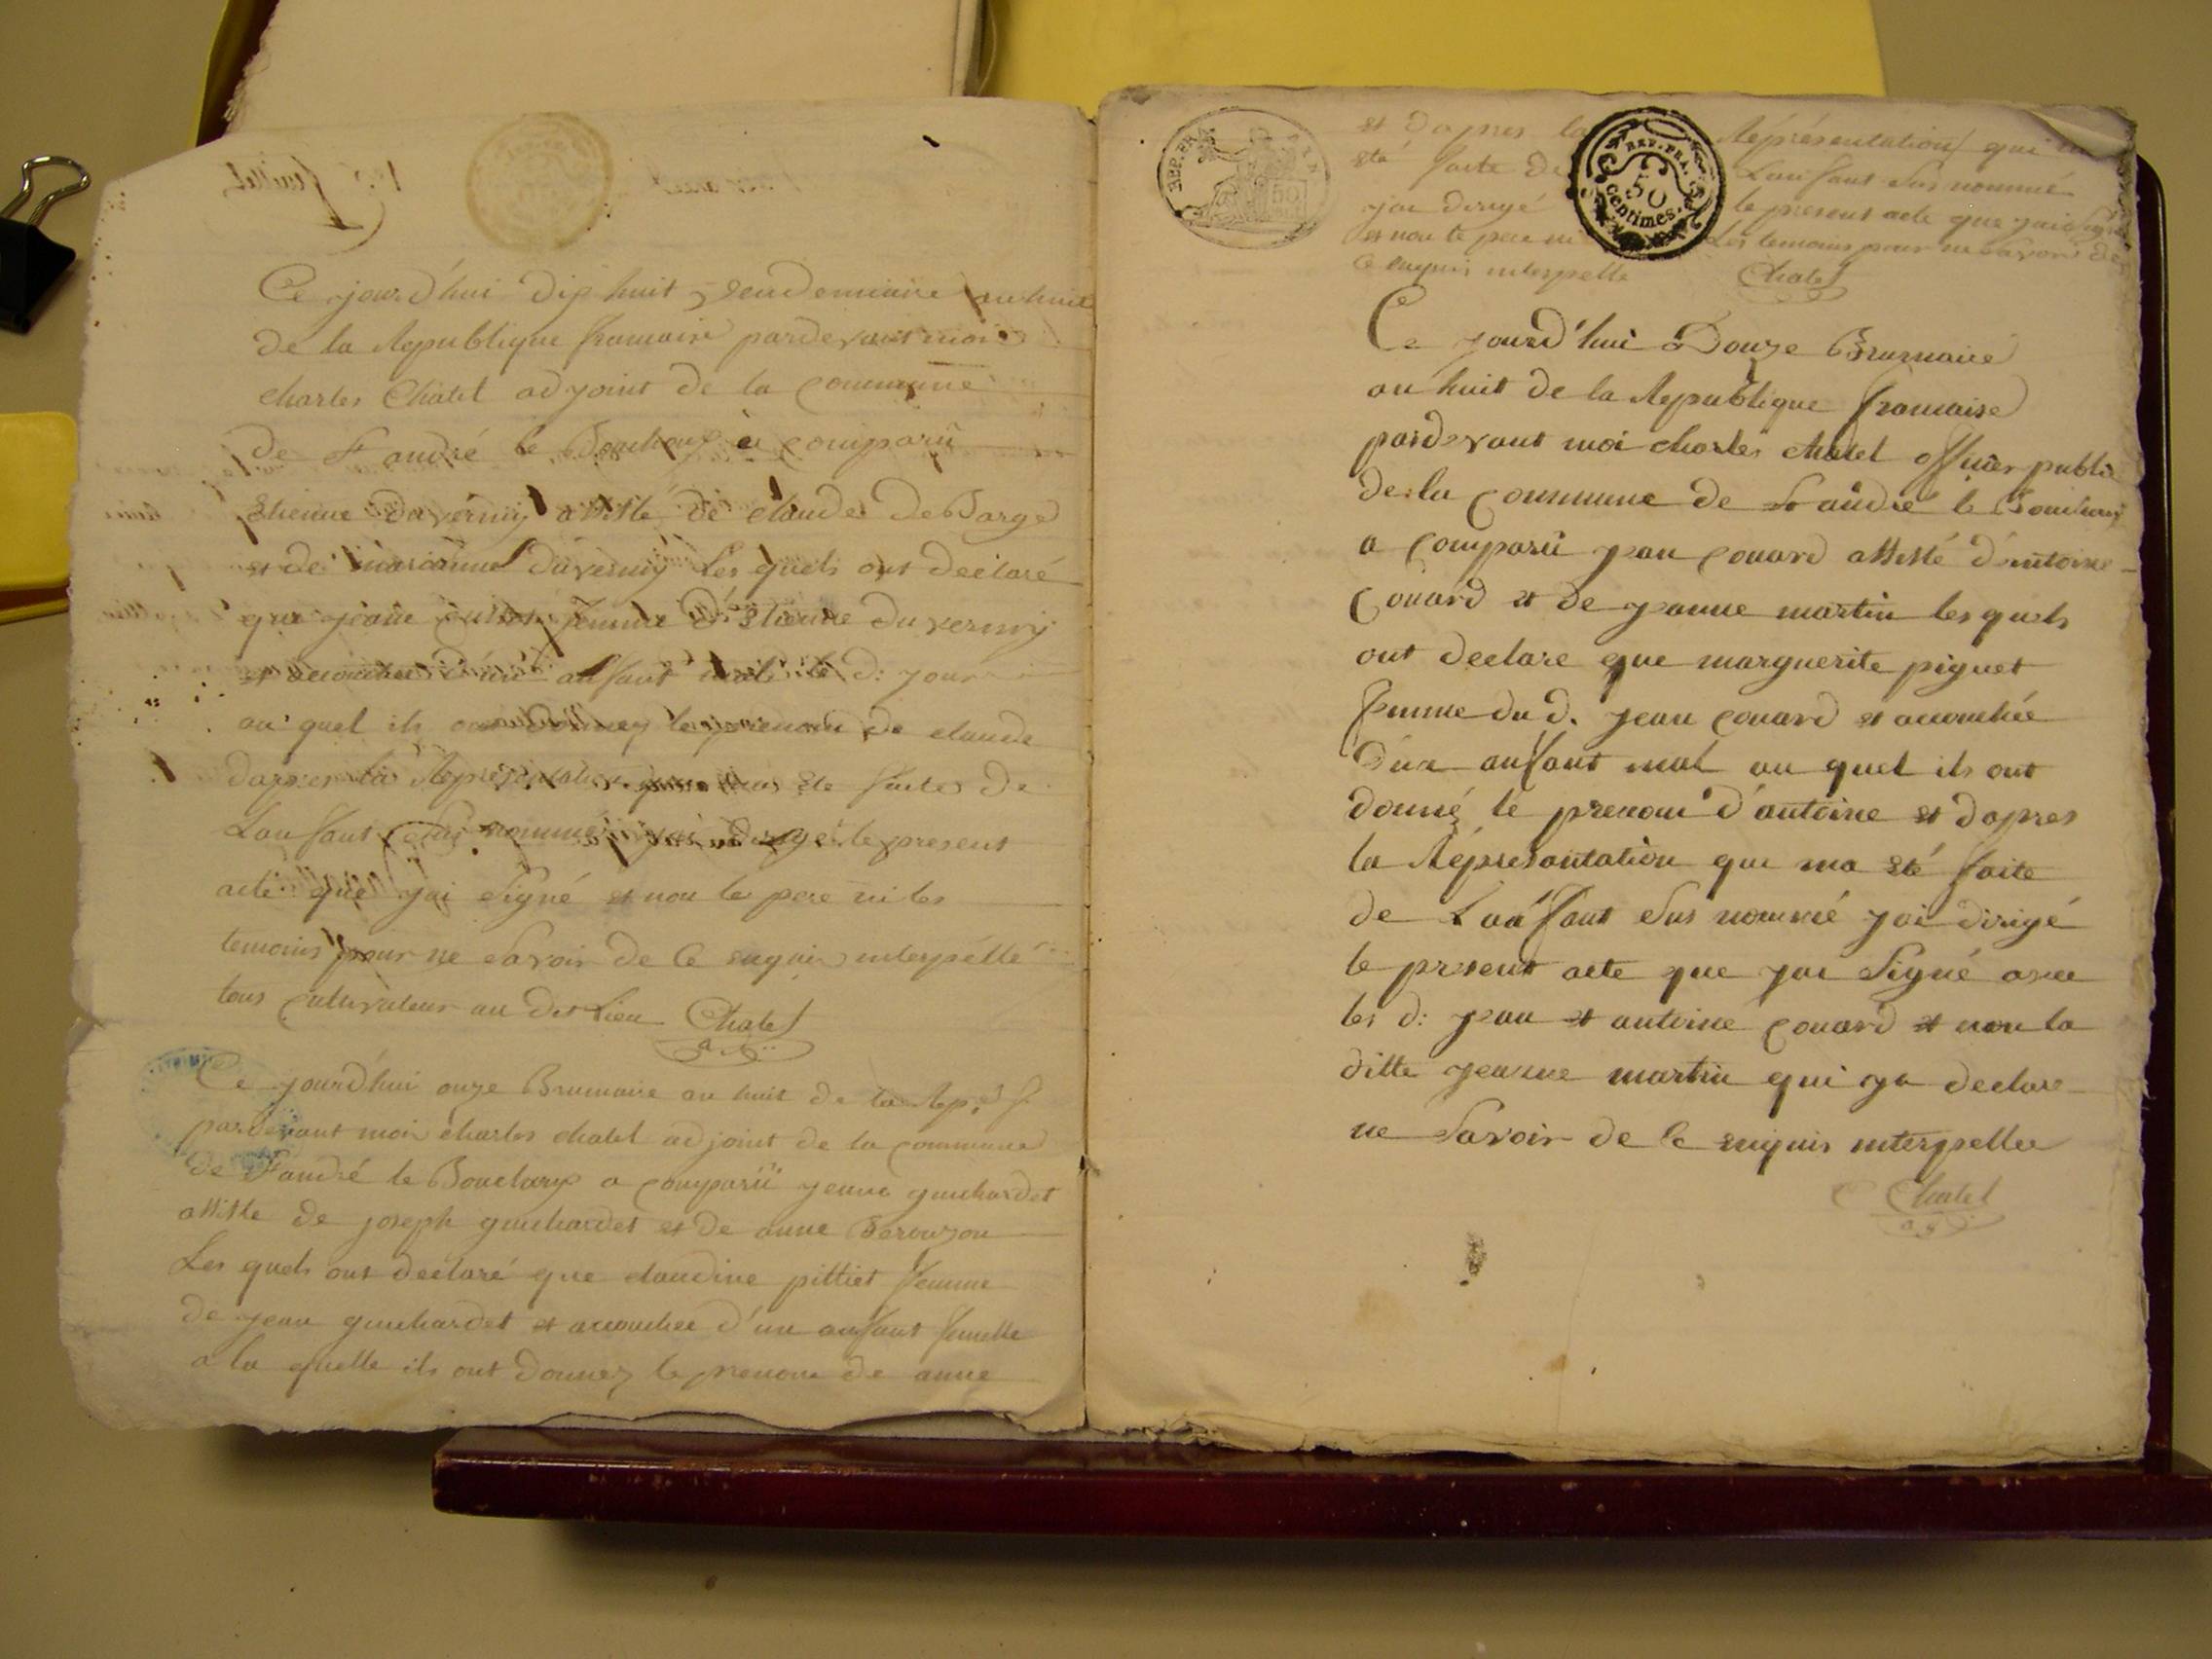 Ce jourd'hui dix huit vendemiaire an huit
de la Republique francaise pardevant moi
charles Chatel adjoint de la commune
de St andré le Bouchoux a comparü
Etienne duverniy assisté de claude DeBarge
et de marianne duverniy Les quels ont declaré
que femme d'Etienne duverniy
et accouchée d'un anfant male le d: jour
au quel ils ont donnez le prenom de claude
dapres la Representation qui ma ete faite de
Lanfant sus nommé jai dirigé le present
acte que jai signé et non le pere ni les
temoins pour ne savoir de ce enquis interpellé
tous cultivateur au dit Lieu Chatel
Ce jourd'hui onze Brumaire an huit de la Rep. f
pardevant moi charles chatel adjoint de la commune
de St andré le Bouchoux a comparü jean guichardet
assiste de joseph guichardet et de anne
Les quels ont declaré que claudine pittiet femme
de jean guichardet et accouchée d'un anfant femelle
a la quelle ils ont donnez le prenom de anne
REP. FRA.
50
REP. FRA.
50
centimes.
et dapres la Représentation qui
eté faite de Lanfant sus nommé
jai dirigé le present acte que jai signé
et non le pere ni Les temoins pour ne savoir de
ce enquis interpelle Chatel
Ce jourd'hui Douze Brumaire
an huit de la Republique francaise
pardevant moi charles chatel officier public
de la Commune de St andré le Bouchoux
a comparü jean couard assisté d'antoine
Couard et de jeanne martin les quels
ont declare que marguerite piguet
femme du d. jean couard et accouchée
d'un anfant mal au quel ils ont
donné le prenom d'antoine et dapres
la Représantation qui ma eté faite
de Lanfant sus nommé jai dirigé
le present acte que jai signé avec
les d: jean et antoine couard et non la
ditte jeanne martin qui ya declare
ne savoir de ce enquis interpellee
Chatel